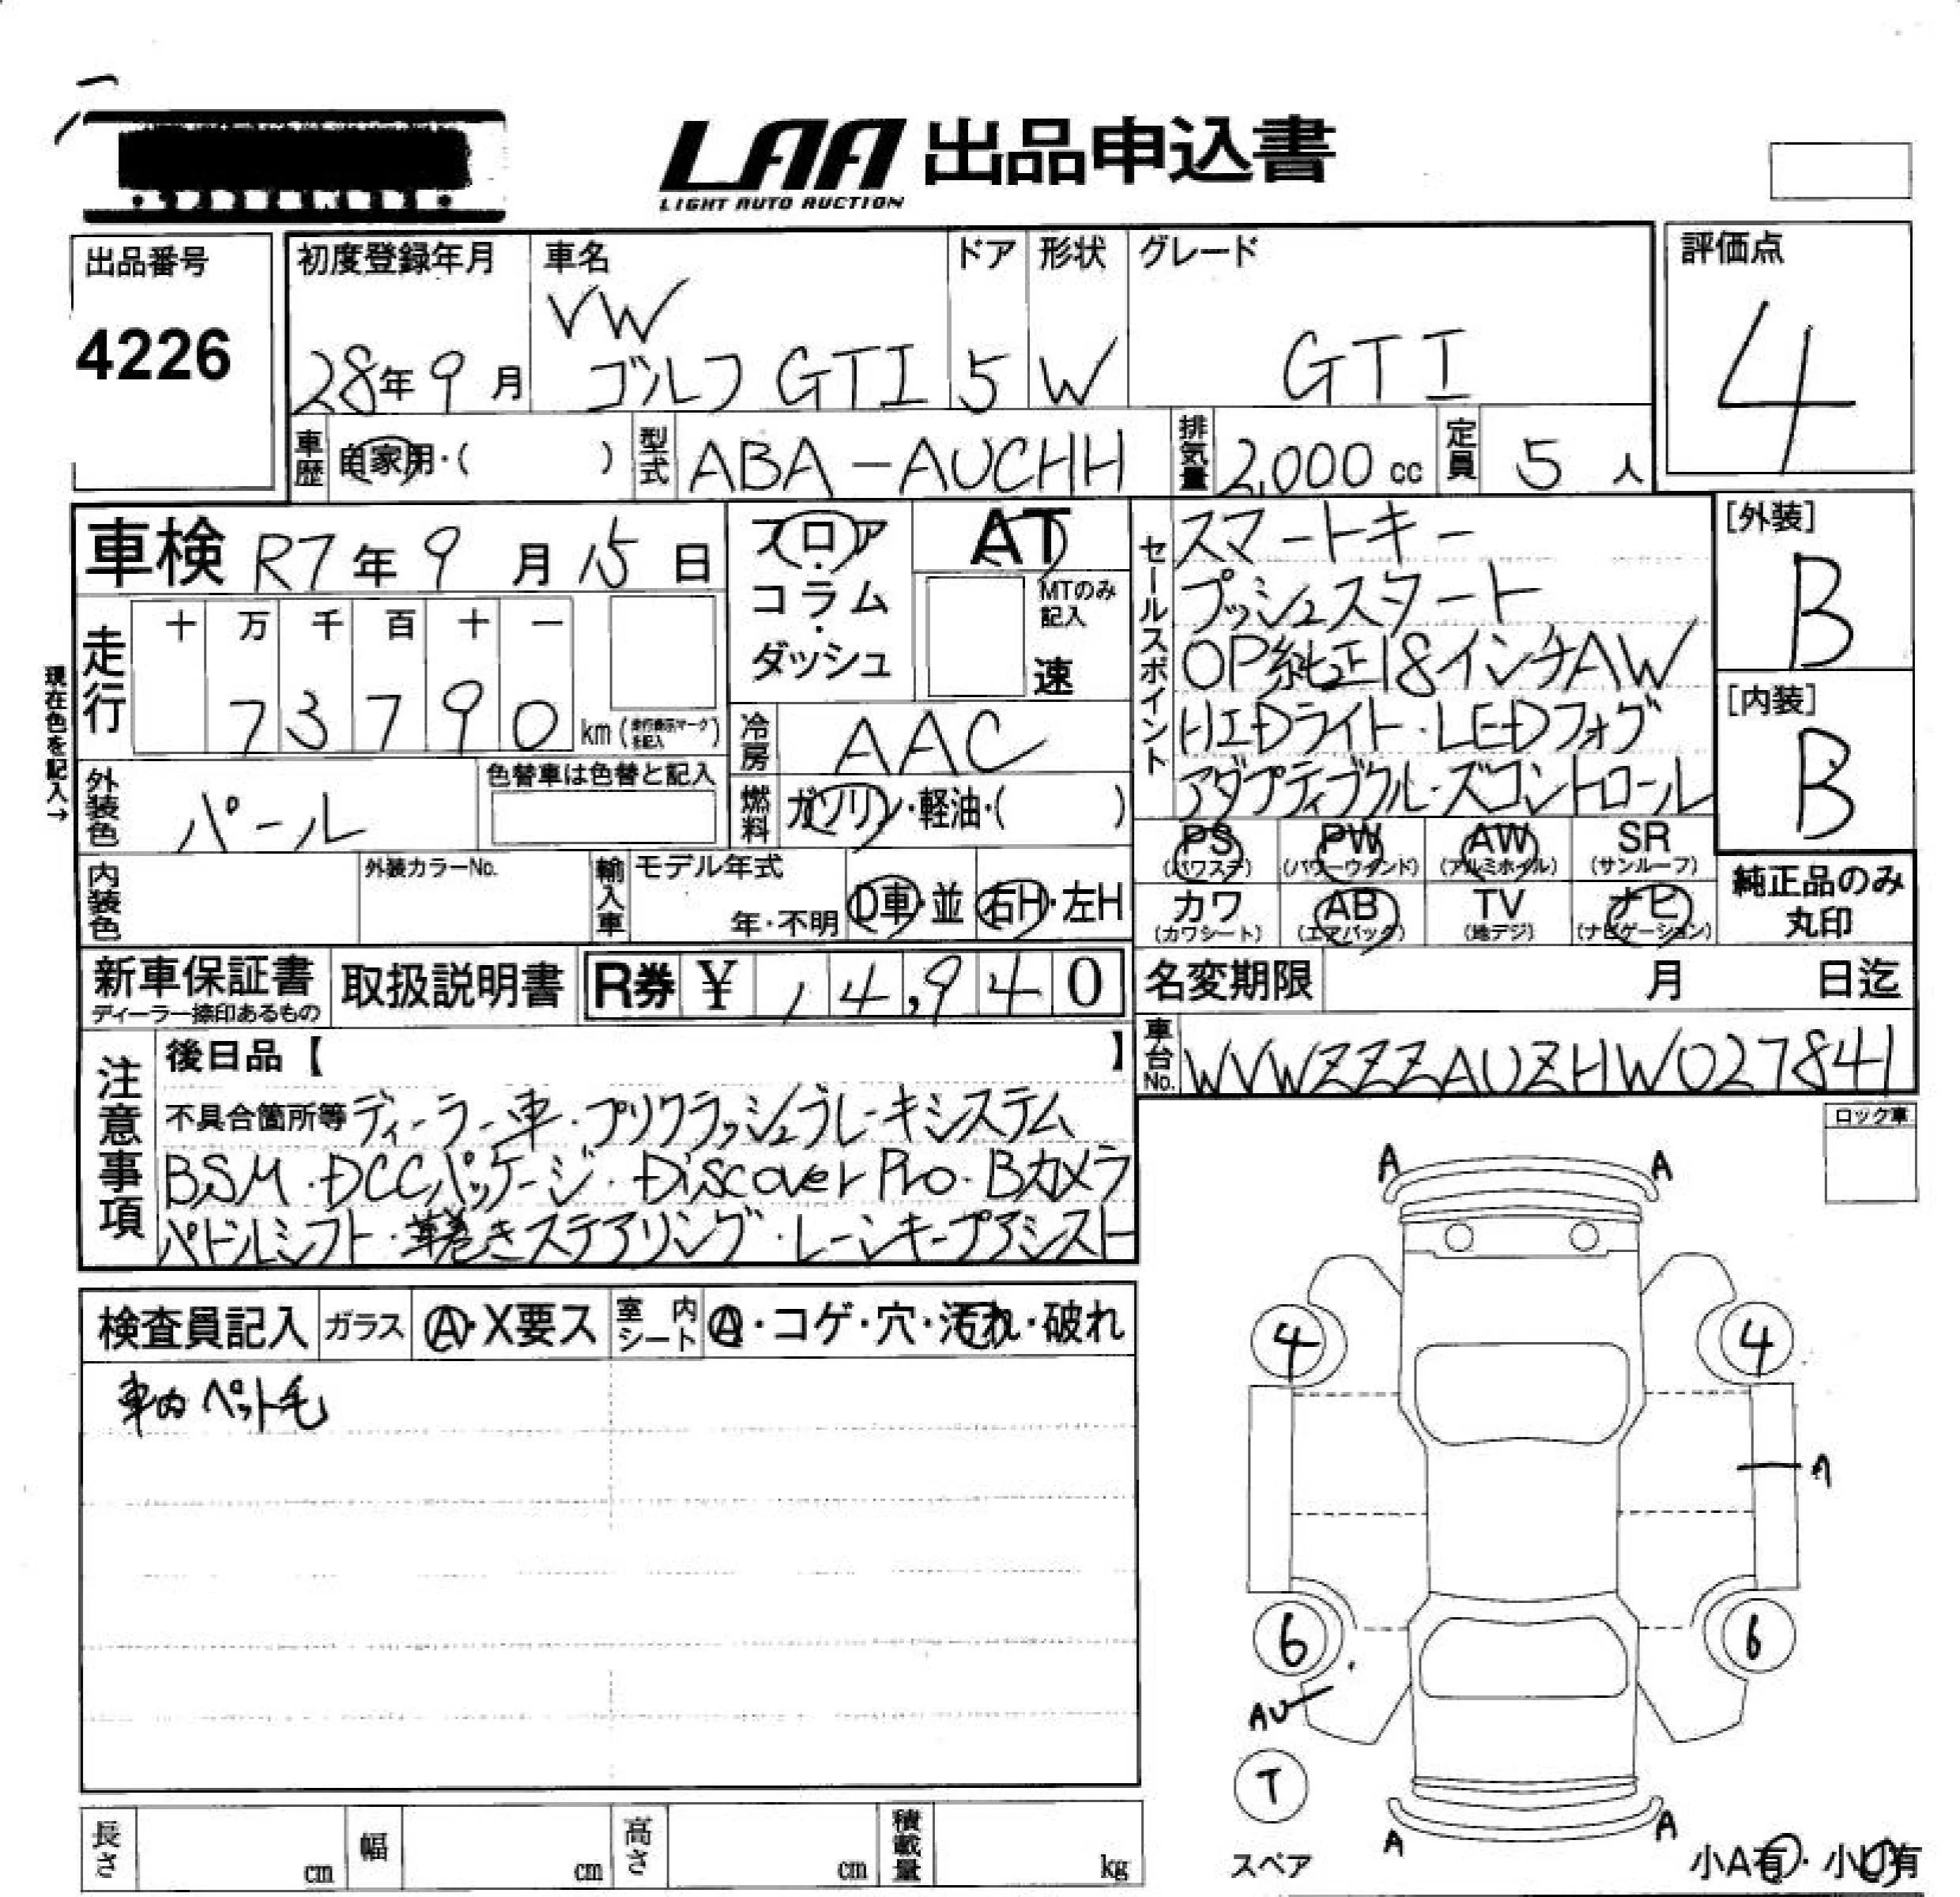 LAA 出品申込書
LIGHT AUTO AUCTION
出品番号
4226
初度登録年月
28年 9月
車名
VW
ゴルフ GTI
ドア
5
形状
W
グレード
GTI
評価点
4
車歴
自家用・( )
型式
ABA-AUCHH
排気量
2,000 cc
定員
5 人
車検 R7年 9月 15日
フロア・コラム・ダッシュ
AT
MTのみ記入
速
セールスポイント
スマートキー
プッシュスタート
OP純正18インチAW
HIDライト・LEDフォグ
アダプティブクルーズコントロール
[外装]
B
[内装]
B
現在色を記入→
走行
十 万 千 百 十 一
7 3 7 9 0 km (走行表示マークを記入)
冷房
AAC
外装色
パール
色替車は色替と記入
燃料
ガソリン・軽油・( )
PS (パワステ)
PW (パワーウィンド)
AW (アルミホイル)
SR (サンルーフ)
カワ (カワシート)
AB (エアバック)
TV (地デジ)
ナビ (ナビゲーション)
純正品のみ丸印
内装色
外装カラーNo.
輸入車
モデル年式
年・不明
D車・並
右H・左H
新車保証書
ディーラー捺印あるもの
取扱説明書
R券 ¥ 14,940
名変期限 月 日迄
車台No.
WVWZZZAUZHW027841
注意事項
後日品【 】
不具合箇所等 ディーラー車・プリクラッシュブレーキシステム
BSM・DCCパッケージ・Discover Pro・Bカメラ
パドルシフト・革巻きステアリング・レーンキープアシスト
ロック車
検査員記入
ガラス
A・X要ス
室内シート
A・コゲ・穴・汚れ・破れ
車内ペット毛
A A
4 4
A
6 6
AU
T
スペア
A A
小A有・小U有
長さ cm
幅 cm
高さ cm
積載量 kg